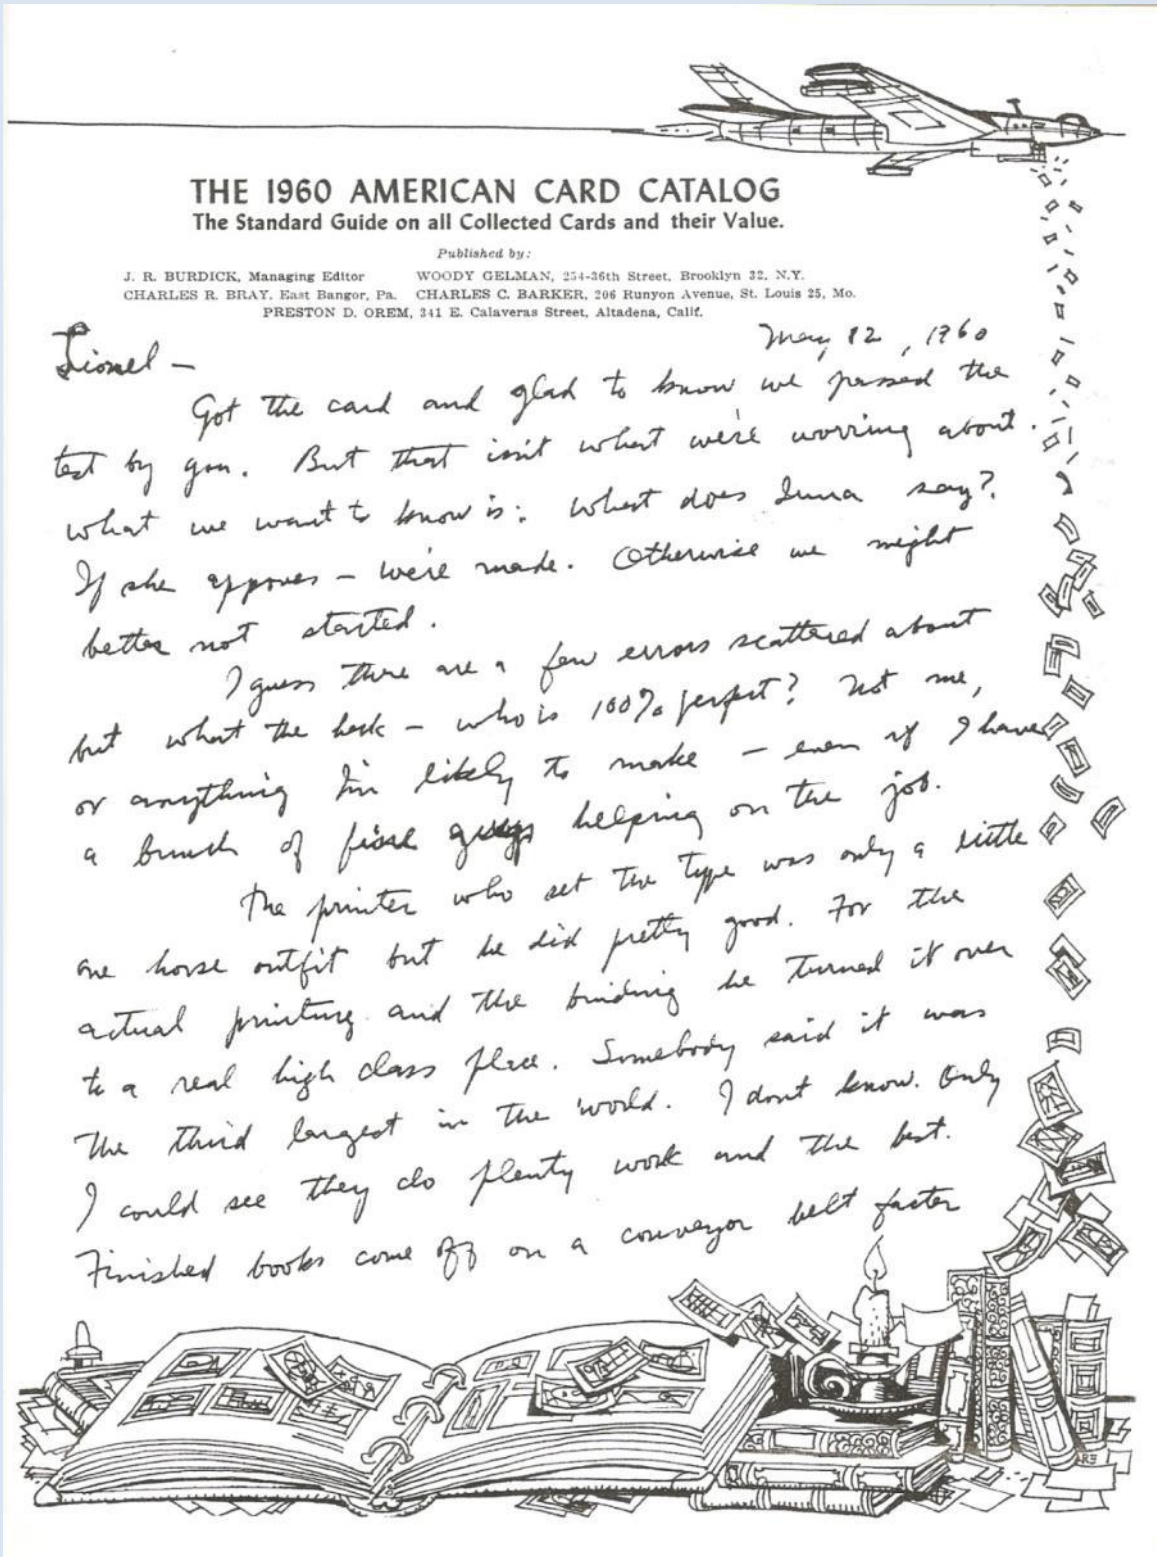 THE 1960 AMERICAN CARD CATALOG
The Standard Guide on all Collected Cards and their Value.
Published by:
J. R. BURDICK, Managing Editor WOODY GELMAN, 254-36th Street, Brooklyn 32, N.Y.
CHARLES R. BRAY, East Bangor, Pa. CHARLES C. BARKER, 206 Runyon Avenue, St. Louis 25, Mo.
PRESTON D. OREM, 341 E. Calaveras Street, Altadena, Calif.
May 12, 1960
Lionel —
Got the card and glad to know we passed the
test by you. But that isn't what we're worring about.
What we want to know is: What does Inna say?
If she approves — we're made. Otherwise we might
better not started.
I guess there are a few errors scattered about
but what the heck — who is 100% perfect? Not me,
or anything I'm likely to make — even if I have
a bunch of fine guys helping on the job.
The printer who set the type was only a little
one horse outfit but he did pretty good. For the
actual printing and the binding he turned it over
to a real high class place. Somebody said it was
the third largest in the world. I dont know. Only
I could see they do plenty work and the best.
Finished books come off on a conveyor belt faster